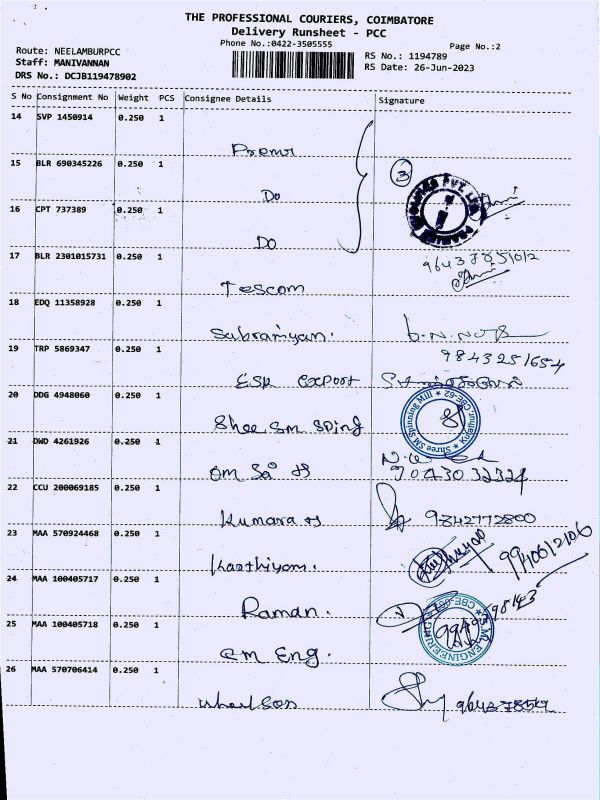 THE PROFESSIONAL COURIERS, COIMBATORE
Delivery Runsheet - PCC
Phone No.:0422-3505555
Page No.:2
Route: NEELAMBURPCC
Staff: MANIVANNAN
DRS No.: DCJB119478902
RS No.: 1194789
RS Date: 26-Jun-2023
S No Consignment No Weight PCS Consignee Details Signature
14 SVP 1450914 0.250 1
15 BLR 690345226 0.250 1 Do
3
16 CPT 737389 0.250 1 Do
17 BLR 2301015731 0.250 1 Tescom
18 EDQ 11358928 0.250 1 Subramiyan.
9843251654
19 TRP 5869347 0.250 1 ESK Export
20 DDG 4948060 0.250 1 Shee sm sping
Shree SM Spinning Mill * Kulathur CBE-62 *
21 DWD 4261926 0.250 1
9043032324
22 CCU 200069185 0.250 1 Kumara
9842772800
23 MAA 570924468 0.250 1
9940612106
24 MAA 100405717 0.250 1 Raman.
25 MAA 100405718 0.250 1 Eng.
26 MAA 570706414 0.250 1